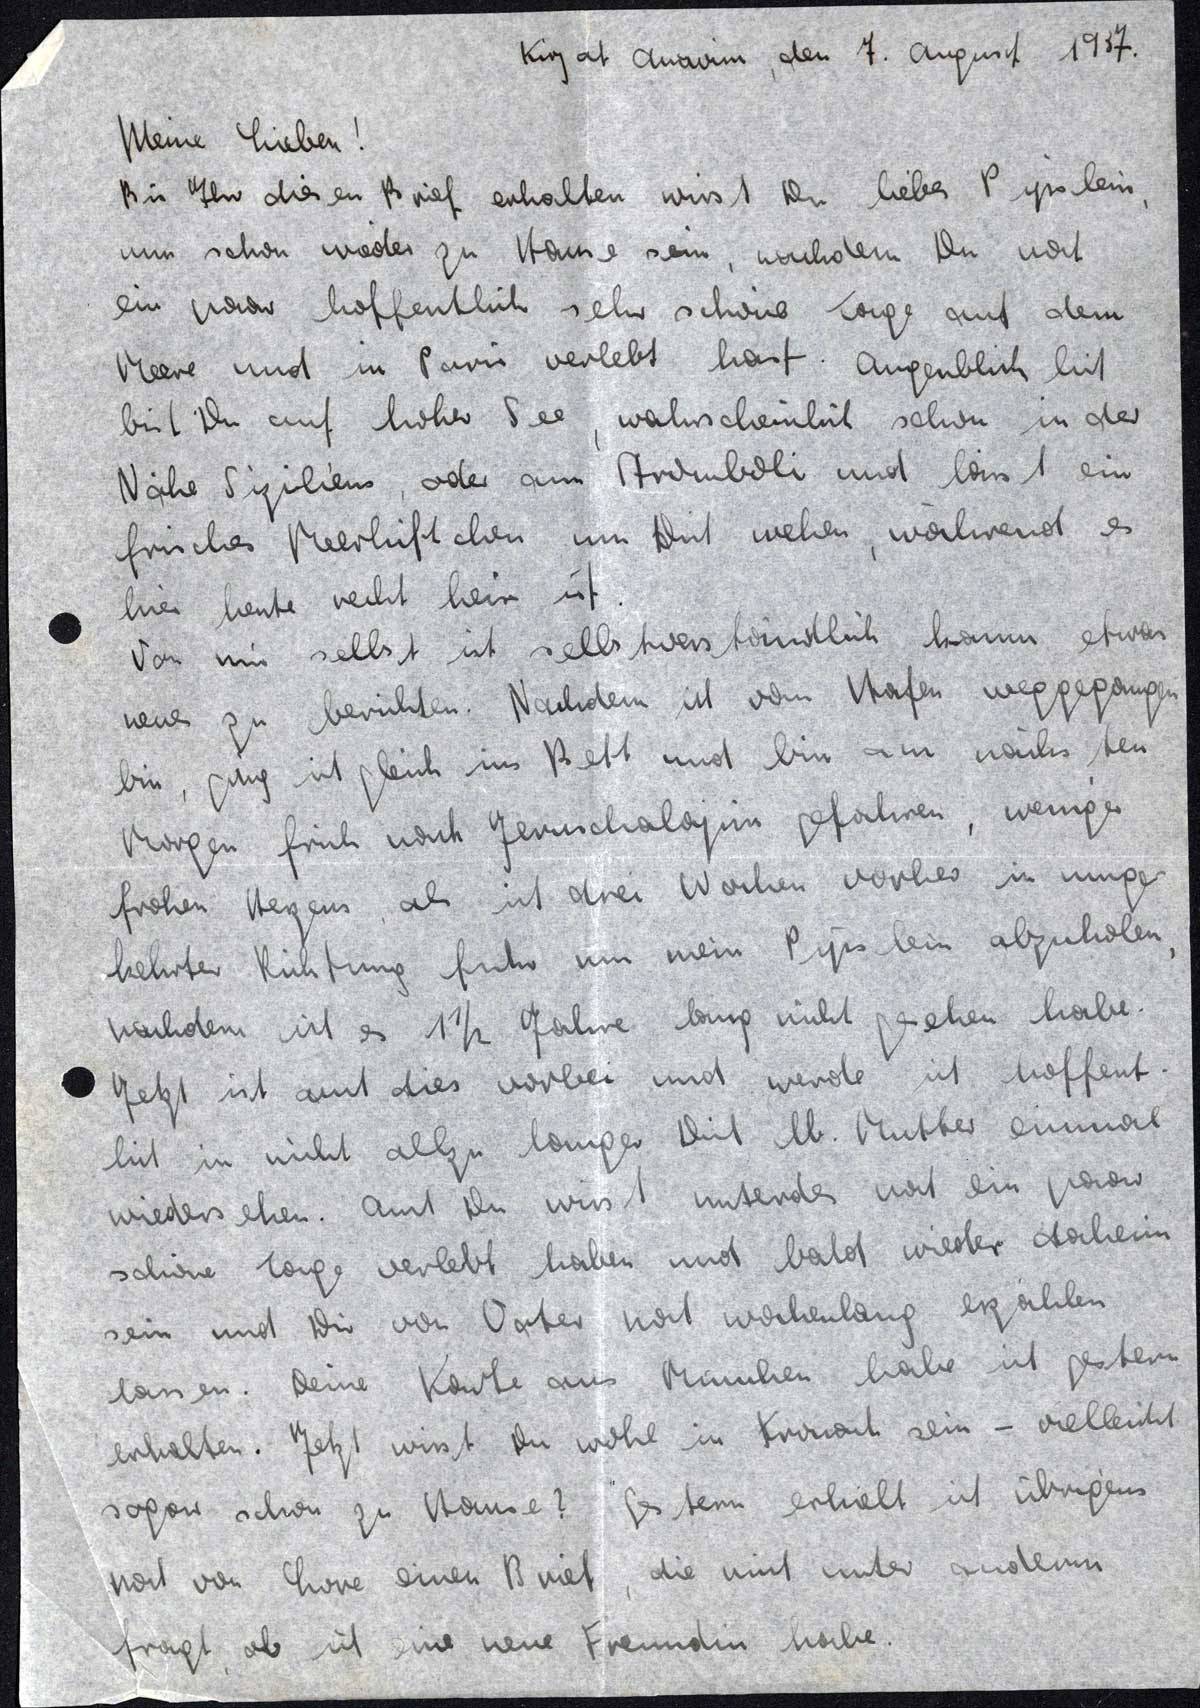 Kirjat Anavim, den 7. August 1937.
Meine Lieben!
Bis Ihr diesen Brief erhalten wirst Du liebes Pipslein,
nun schon wieder zu Hause sein, nachdem Du noch
ein paar hoffentlich sehr schöne Tage auf dem
Meere und in Paris verlebt hast. Augenblicklich
bist Du auf hoher See, wahrscheinlich schon in der
Nähe Siziliens, oder am Stromboli und lässt ein
frisches Meerlüftchen um Dich wehen, während es
hier heute recht heiss ist.
Von mir selbst ist selbstverständlich kaum etwas
neues zu berichten. Nachdem ich vom Hafen weggegangen
bin, ging ich gleich ins Bett und bin am nächsten
Morgen früh nach Jeruschalajim gefahren, weniger
frohen Herzens, als ich drei Wochen vorher in umge-
kehrter Richtung fuhr um mein Pipslein abzuholen,
nachdem ich es 1 1/2 Jahre lang nicht gesehen habe.
Jetzt ist auch dies vorbei und werde ich hoffent-
lich in nicht allzu langer Dich lb. Mutter einmal
wiedersehen. Auch Du wirst unterdes noch ein paar
schöne Tage verlebt haben und bald wieder daheim
sein und Dir von Vater noch wochenlang erzählen
lassen. Deine Karte aus München habe ich gestern
erhalten. Jetzt wirst Du wohl in Kronach sein – vielleicht
sogar schon zu Hause? Gestern erhielt ich übrigens
noch von Lore einen Brief, die mich unter anderm
fragt, ob ich eine neue Freundin habe.